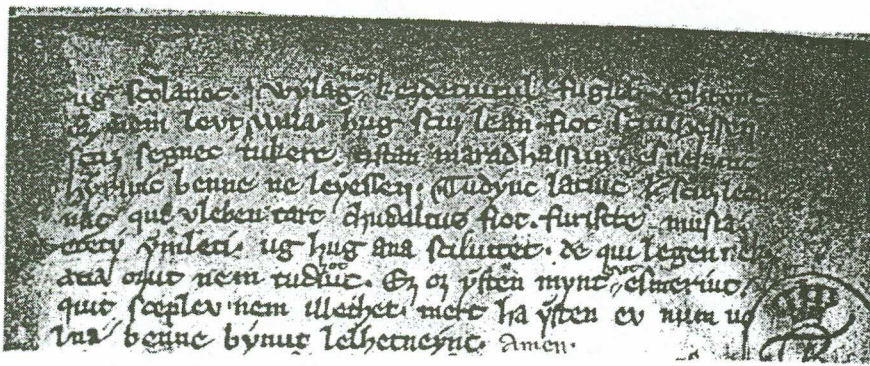 ug scolanoc. wylag nac kezdetuitul fugua rohtonc
ez nem levt vula. hug scuz lean fiot sciulhessen.
scuz segnec tukere tistan maradhassun. es nekunc
hyrunc benne ne leyessen. Tudyuc latiuc scuz lean
nac que vleben tart chudaltus fiot. furiscte musia.
etety ymleti. ug hug ana sciluttet. de qui legen
atia ozut nem tudhotiuc. Ez oz ysten mynt evt esmeriuc
quit sceplev nem illethet. mert ha ysten ev num uo
lna benne bynut lelhetneync. Amen.